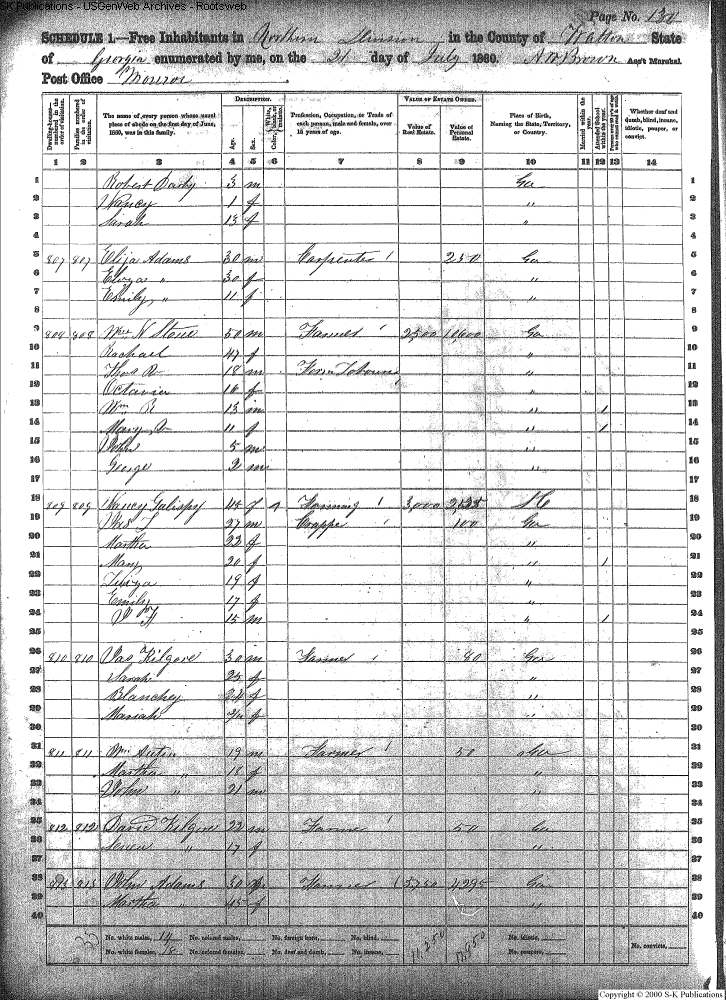 S-K Publications - USGenWeb Archives - Rootsweb
Page No. 130
SCHEDULE 1.—Free Inhabitants in Northern Division in the County of Walton State
of Georgia enumerated by me, on the 21 day of July 1860. A W Brown Ass't Marshal.
Post Office Monroe
Dwelling-houses numbered in the order of visitation. Families numbered in the order of visitation. The name of every person whose usual place of abode on the first day of June, 1860, was in this family. DESCRIPTION. Age. Sex. Color, White, black, or mulatto. Profession, Occupation, or Trade of each person, male and female, over 15 years of age. VALUE OF ESTATE OWNED. Value of Real Estate. Value of Personal Estate. Place of Birth, Naming the State, Territory, or Country. Married within the year. Attended School within the year. Whether deaf and dumb, blind, insane, idiotic, pauper, or convict.
1 2 3 4 5 6 7 8 9 10 11 12 13 14
1 Robert Darby 3 m Ga 1
2 Nancy 1 f " 2
3 Sarah 13 f " 3
4 4
5 807 807 Elija Adams 30 m Carpenter 250 Ga 5
6 Eliza " 30 f " 6
7 Emily " 11 f " 7
8 8
9 808 808 Wm N Stone 50 m Farmer 2500 10,600 Ga 9
10 Rachael 47 f " 10
11 Thos R 18 m Farm Labourer " 11
12 Octavia 16 f " 12
13 Wm R 13 m " 1 13
14 Mary 11 f " 1 14
15 John 5 m " 15
16 George 2 m " 16
17 17
18 809 809 Nancy Galispy 48 f Farming 3,000 18
19 27 m Crapper 100 Ga 19
20 Martha 22 f " 20
21 Mary 20 f " 1 21
22 19 f " 22
23 Emily 17 f " 23
24 15 m " 1 24
25 25
26 810 810 Jas Kilgore 30 m Farmer 80 Ga 26
27 Sarah 25 f " 27
28 Blanchey 24 f " 28
29 Mariah f " 29
30 30
31 811 811 Wm Autry 19 m Farmer 50 Ga 31
32 Martha " 18 f " 32
33 John " 21 m " 33
34 34
35 812 812 David Kilgore 22 m Farmer 50 Ga 35
36 " 17 f " 36
37 37
38 813 813 John Adams 50 Farmer 5750 4295 Ga 38
39 Martha 45 f " 39
40 40
No. white males, 14 No. colored males, No. foreign born, No. blind, 11,250 No. idiotic,
No. white females, 18 No. colored females, No. deaf and dumb, No. insane, No. paupers, No. convicts,
Copyright © 2000 S-K Publications